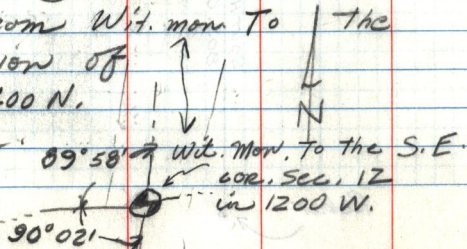 om Wit. mon. To the
ion of
00 N.
N
89°58' Wit. Mon. To the S.E.
cor. Sec. 12
in 1200 W.
90°02'